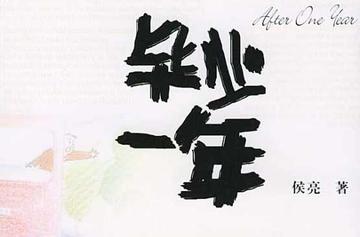 After One Year
毕业
一年
侯亮 著